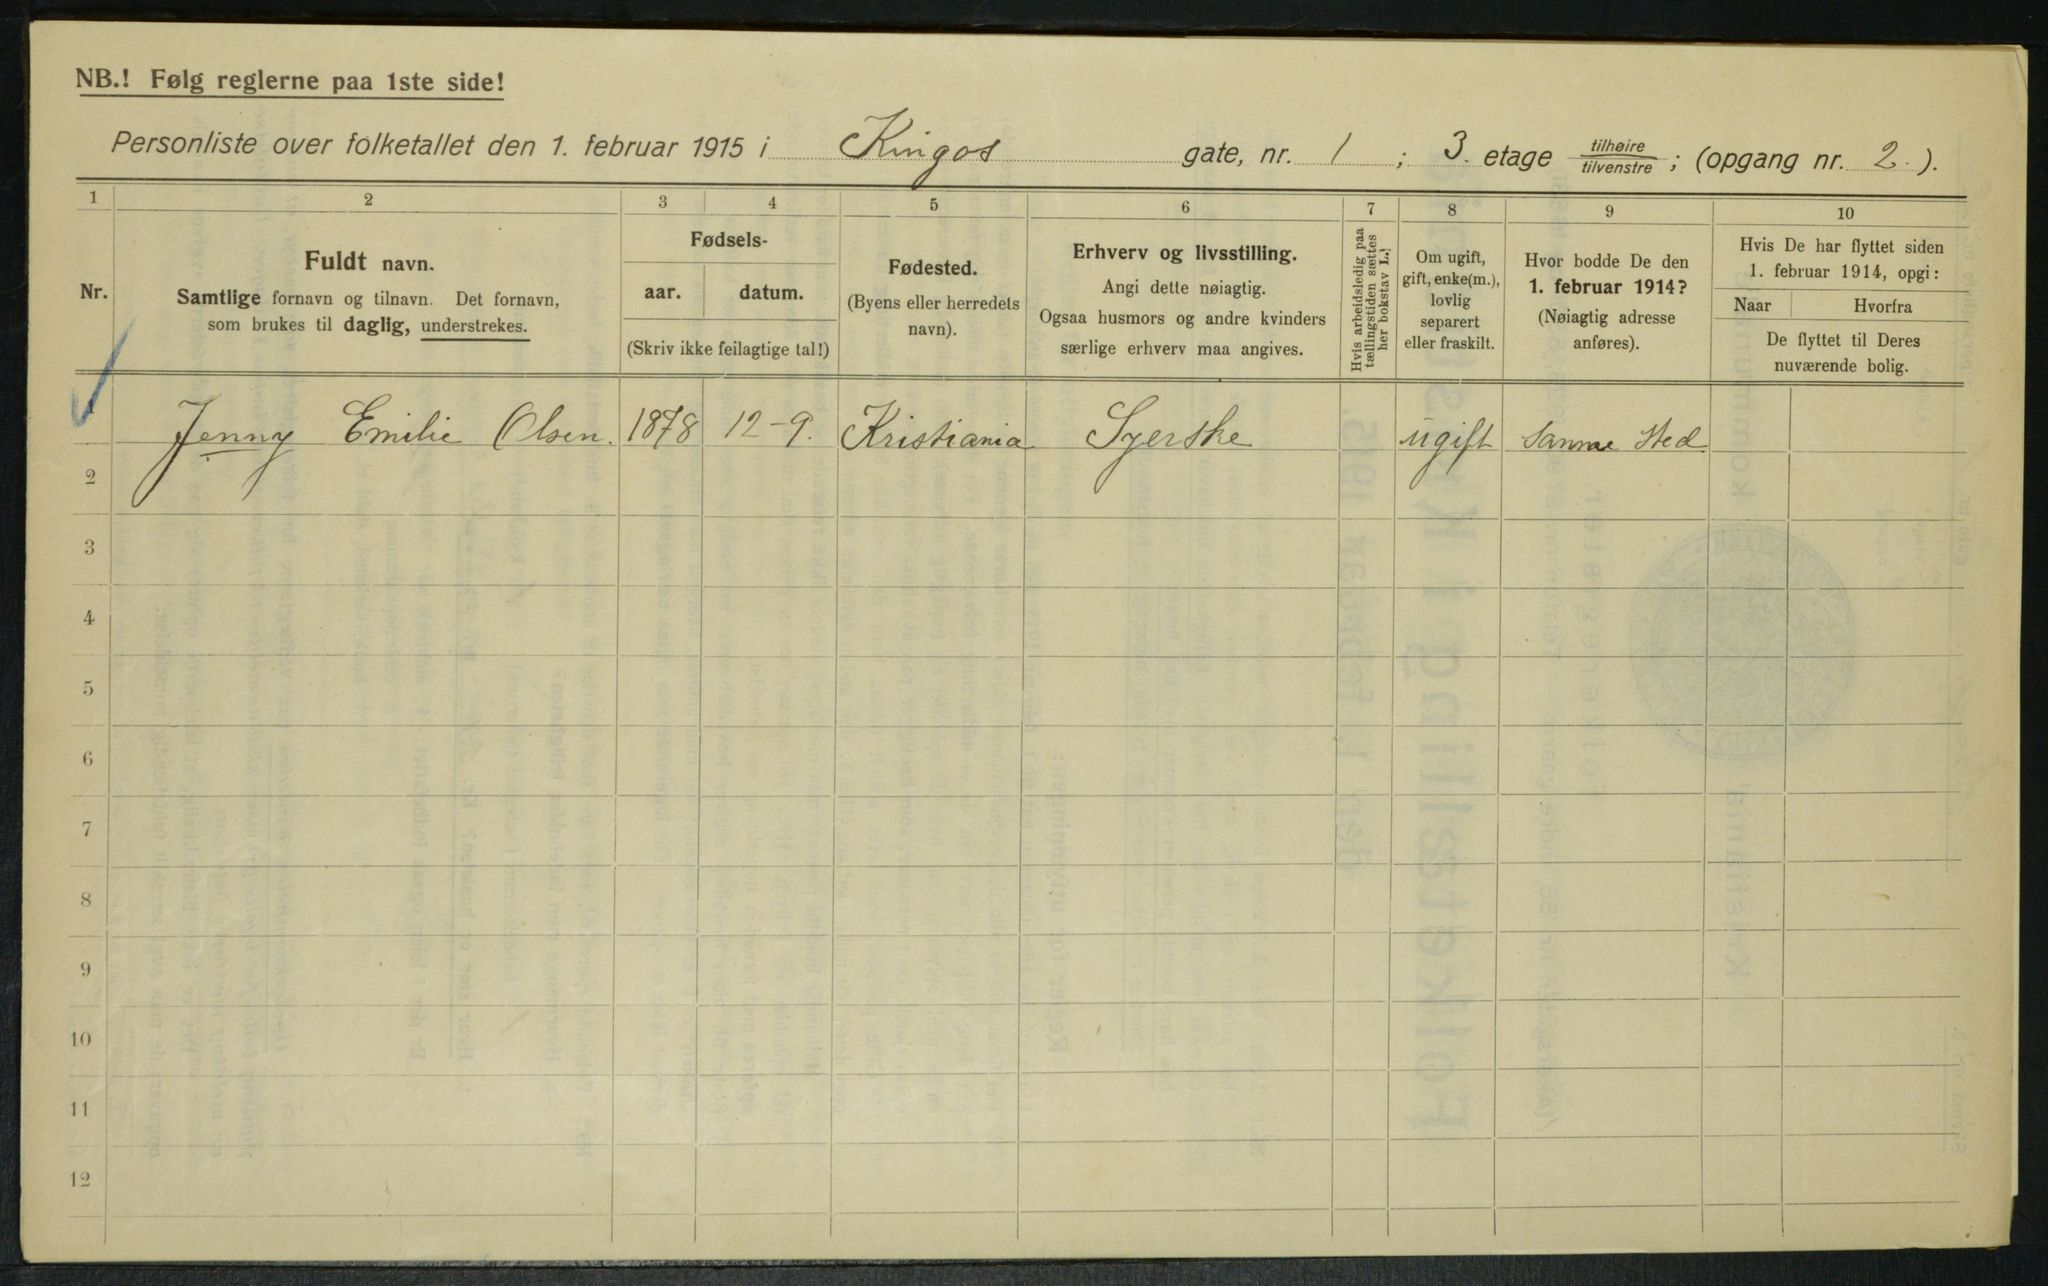 NB.! Følg reglerne paa 1ste side!
Personliste over folketallet den 1. februar 1915 i Kingos gate, nr. 1 ; 3. etage tilhøire/tilvenstre ; (opgang nr. 2. ).
1 2 3 4 5 6 7 8 9 10
Nr.
Fuldt navn.
Samtlige fornavn og tilnavn. Det fornavn,
som brukes til daglig, understrekes.
Fødsels-
aar. datum.
(Skriv ikke feilagtige tal!)
Fødested.
(Byens eller herredets
navn).
Erhverv og livsstilling.
Angi dette nøiagtig.
Ogsaa husmors og andre kvinders
særlige erhverv maa angives.
Hvis arbeidsledig paa
tællingstiden sættes
her bokstav L.
Om ugift,
gift, enke(m.),
lovlig
separert
eller fraskilt.
Hvor bodde De den
1. februar 1914?
(Nøiagtig adresse
anføres).
Hvis De har flyttet siden
1. februar 1914, opgi:
Naar Hvorfra
De flyttet til Deres
nuværende bolig.
1 Jenny Emilie Olsen. 1878 12-9. Kristiania Syerske ugift Samme Sted
2
3
4
5
6
7
8
9
10
11
12